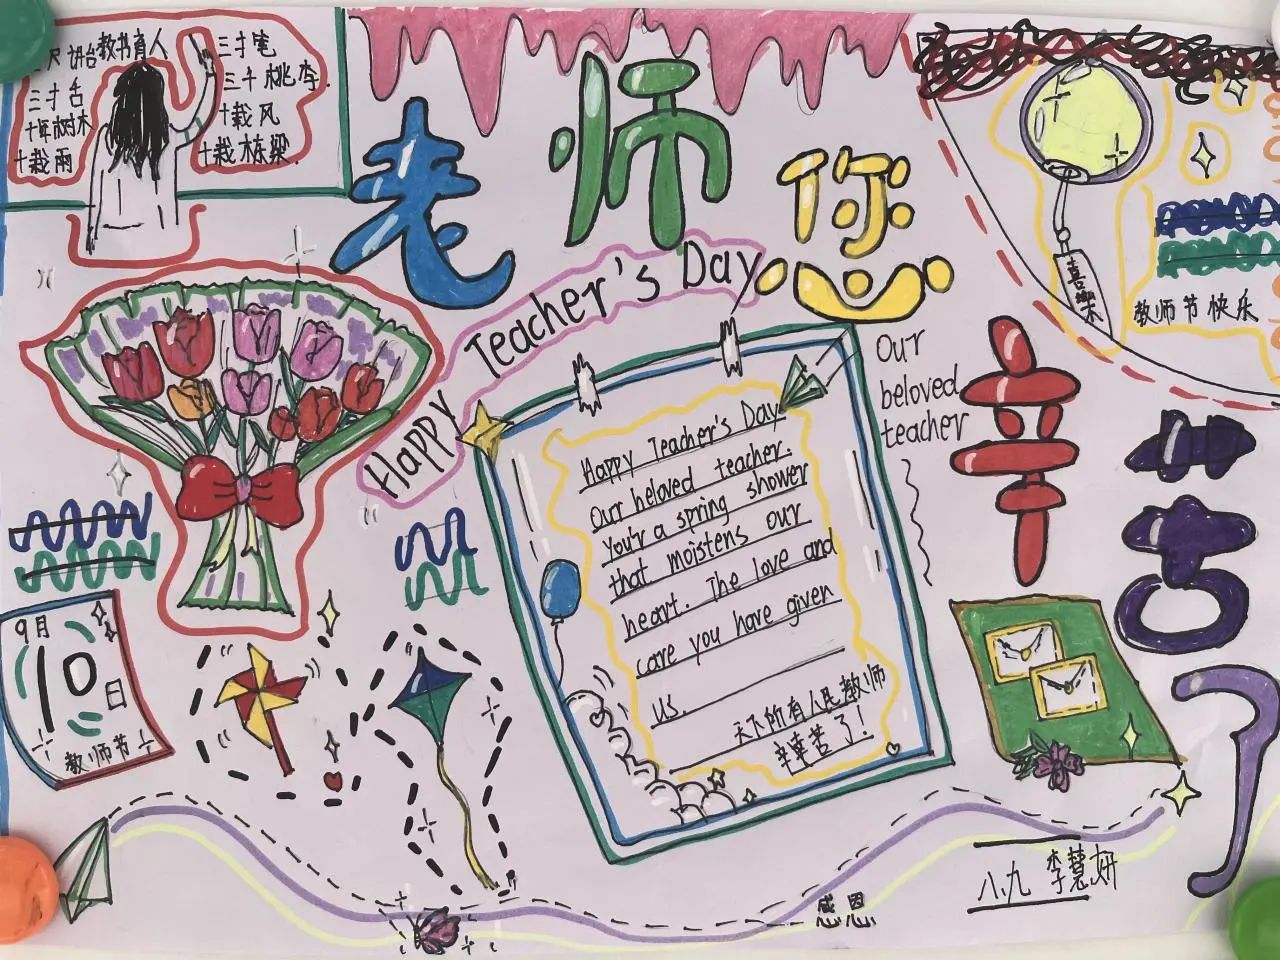 三尺讲台教书育人
三寸舌
十年树木
十栽雨
三寸笔
三千桃李.
十栽风
十栽栋梁.
老师您
辛苦了
Happy Teacher's Day
Our
beloved
teacher
喜樂
教师节快乐
9月
10日
教师节
Happy Teacher's Day
Our beloved teacher.
You'r a spring shower
that moistens our
heart. The love and
care you have given
us.
天下所有人民教师
辛苦了!
感恩
八九 李慧妍